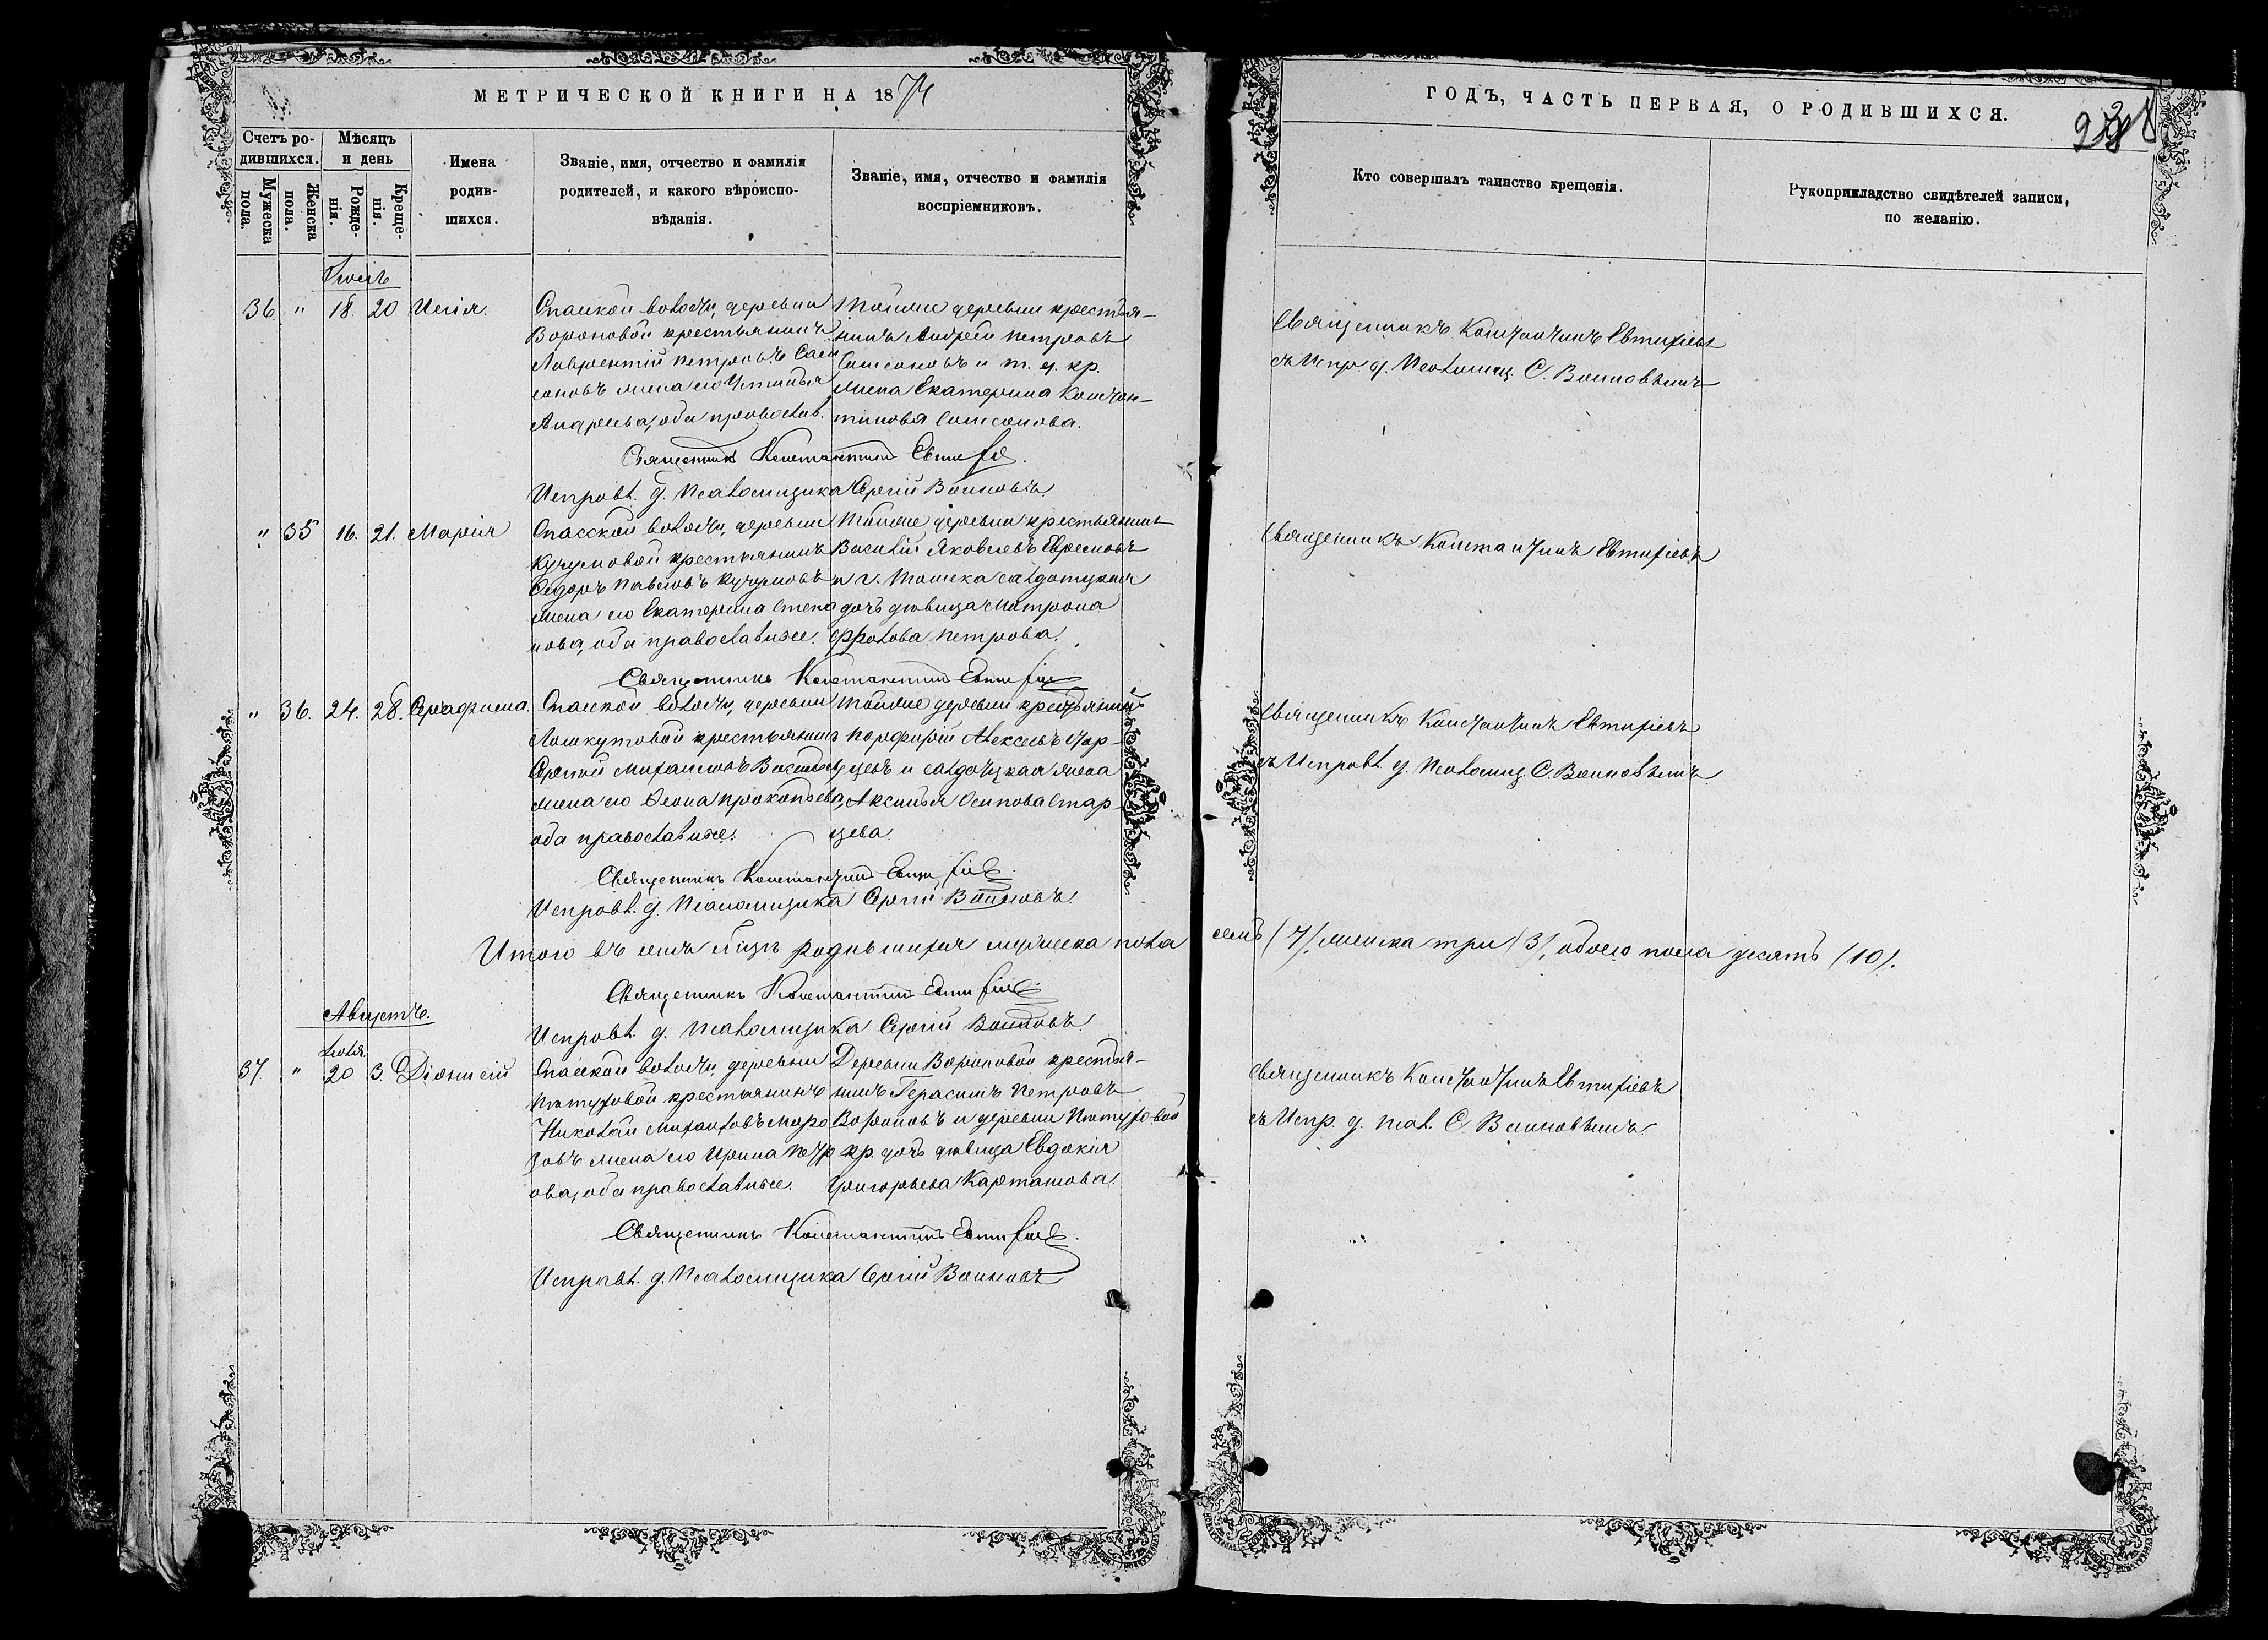 МЕТРИЧЕСКОЙ КНИГИ НА 1874
ГОДЪ, ЧАСТЬ ПЕРВАЯ, О РОДИВШИХСЯ.
Счетъ ро-
дившихся.
Мужеска
пола.
Женска
пола.
Мѣсяцъ
и день
Рожде-
нія.
Креще-
нія.
Имена
родив-
шихся.
Званіе, имя, отчество и фамилія
родителей, и какого вѣроиспо-
вѣданія.
Званіе, имя, отчество и фамилія
воспріемниковъ.
Кто совершалъ таинство крещенія.
Рукоприкладство свидѣтелей записи,
по желанію.
Іюль
36 " 18. 20
Спасской волости, деревни
Вороновой крестьянинъ
Лаврентій Петровъ Сам
соновъ жена его Устинья
Андреева, оба православ.
Тойже деревни крестья-
нинъ Андрей Петровъ
Самсоновъ и т. д. кр.
жена Екатерина Констан-
тинова Самсонова.
Священникъ Константинъ Евтихіевъ
съ Испр. д. Псаломщ. С. Воиновымъ
Священникъ Константинъ Евтихіевъ.
Исправл. д. Псаломщика Сергій Воиновъ.
" 35 16. 21. Марія
Спасской волости, деревни
Кучумовой крестьянинъ
Ѳедоръ Павловъ Кучумовъ
жена его Екатерина Степа
нова, оба православные.
Тойже деревни крестьянинъ
Василій Яковлевъ Ефремовъ
и г. Томска салдатская
дочь дѣвица Матрона
Фролова Петрова.
Священникъ Константинъ Евтихіевъ
Священникъ Константинъ Евтихіевъ
" 36. 24. 28. Серафима.
Спасской волости, деревни
крестьянинъ
Сергій Михаиловъ
жена его Ѳеона Прокопьева,
оба православные.
Тойже деревни крестьянинъ
Порфирій Алексѣевъ Стар-
цевъ и салдатская жена
Аксинья Осипова Стар-
цева.
Священникъ Константинъ Евтихіевъ
съ Исправл. д. Псаломщ. С. Воиновымъ
Священникъ Константинъ Евтихіевъ.
Исправл. д. Псаломщика Сергій Воиновъ.
Итого въ іюлѣ мѣсяцѣ родившихся мужеска пола семь (7), женска три (3), обоего пола десять (10).
Священникъ Константинъ Евтихіевъ.
Исправл. д. Псаломщика Сергій Воиновъ.
Августъ.
іюля.
37. " 20 3. Діонисій
Спасской волости, деревни
Пѣтуховой крестьянинъ
Николай Михаиловъ Моро
зовъ жена его Ирина Петр
ова, оба православные.
Деревни Вороновой крестья-
нинъ Герасимъ Петровъ
Вороновъ и деревни Пѣтуховой
кр. дочь дѣвица Евдокія
Григорьева Карташова.
Священникъ Константинъ Евтихіевъ
съ Испр. д. Псал. С. Воиновымъ.
Священникъ Константинъ Евтихіевъ.
Исправл. д. Псаломщика Сергій Воиновъ